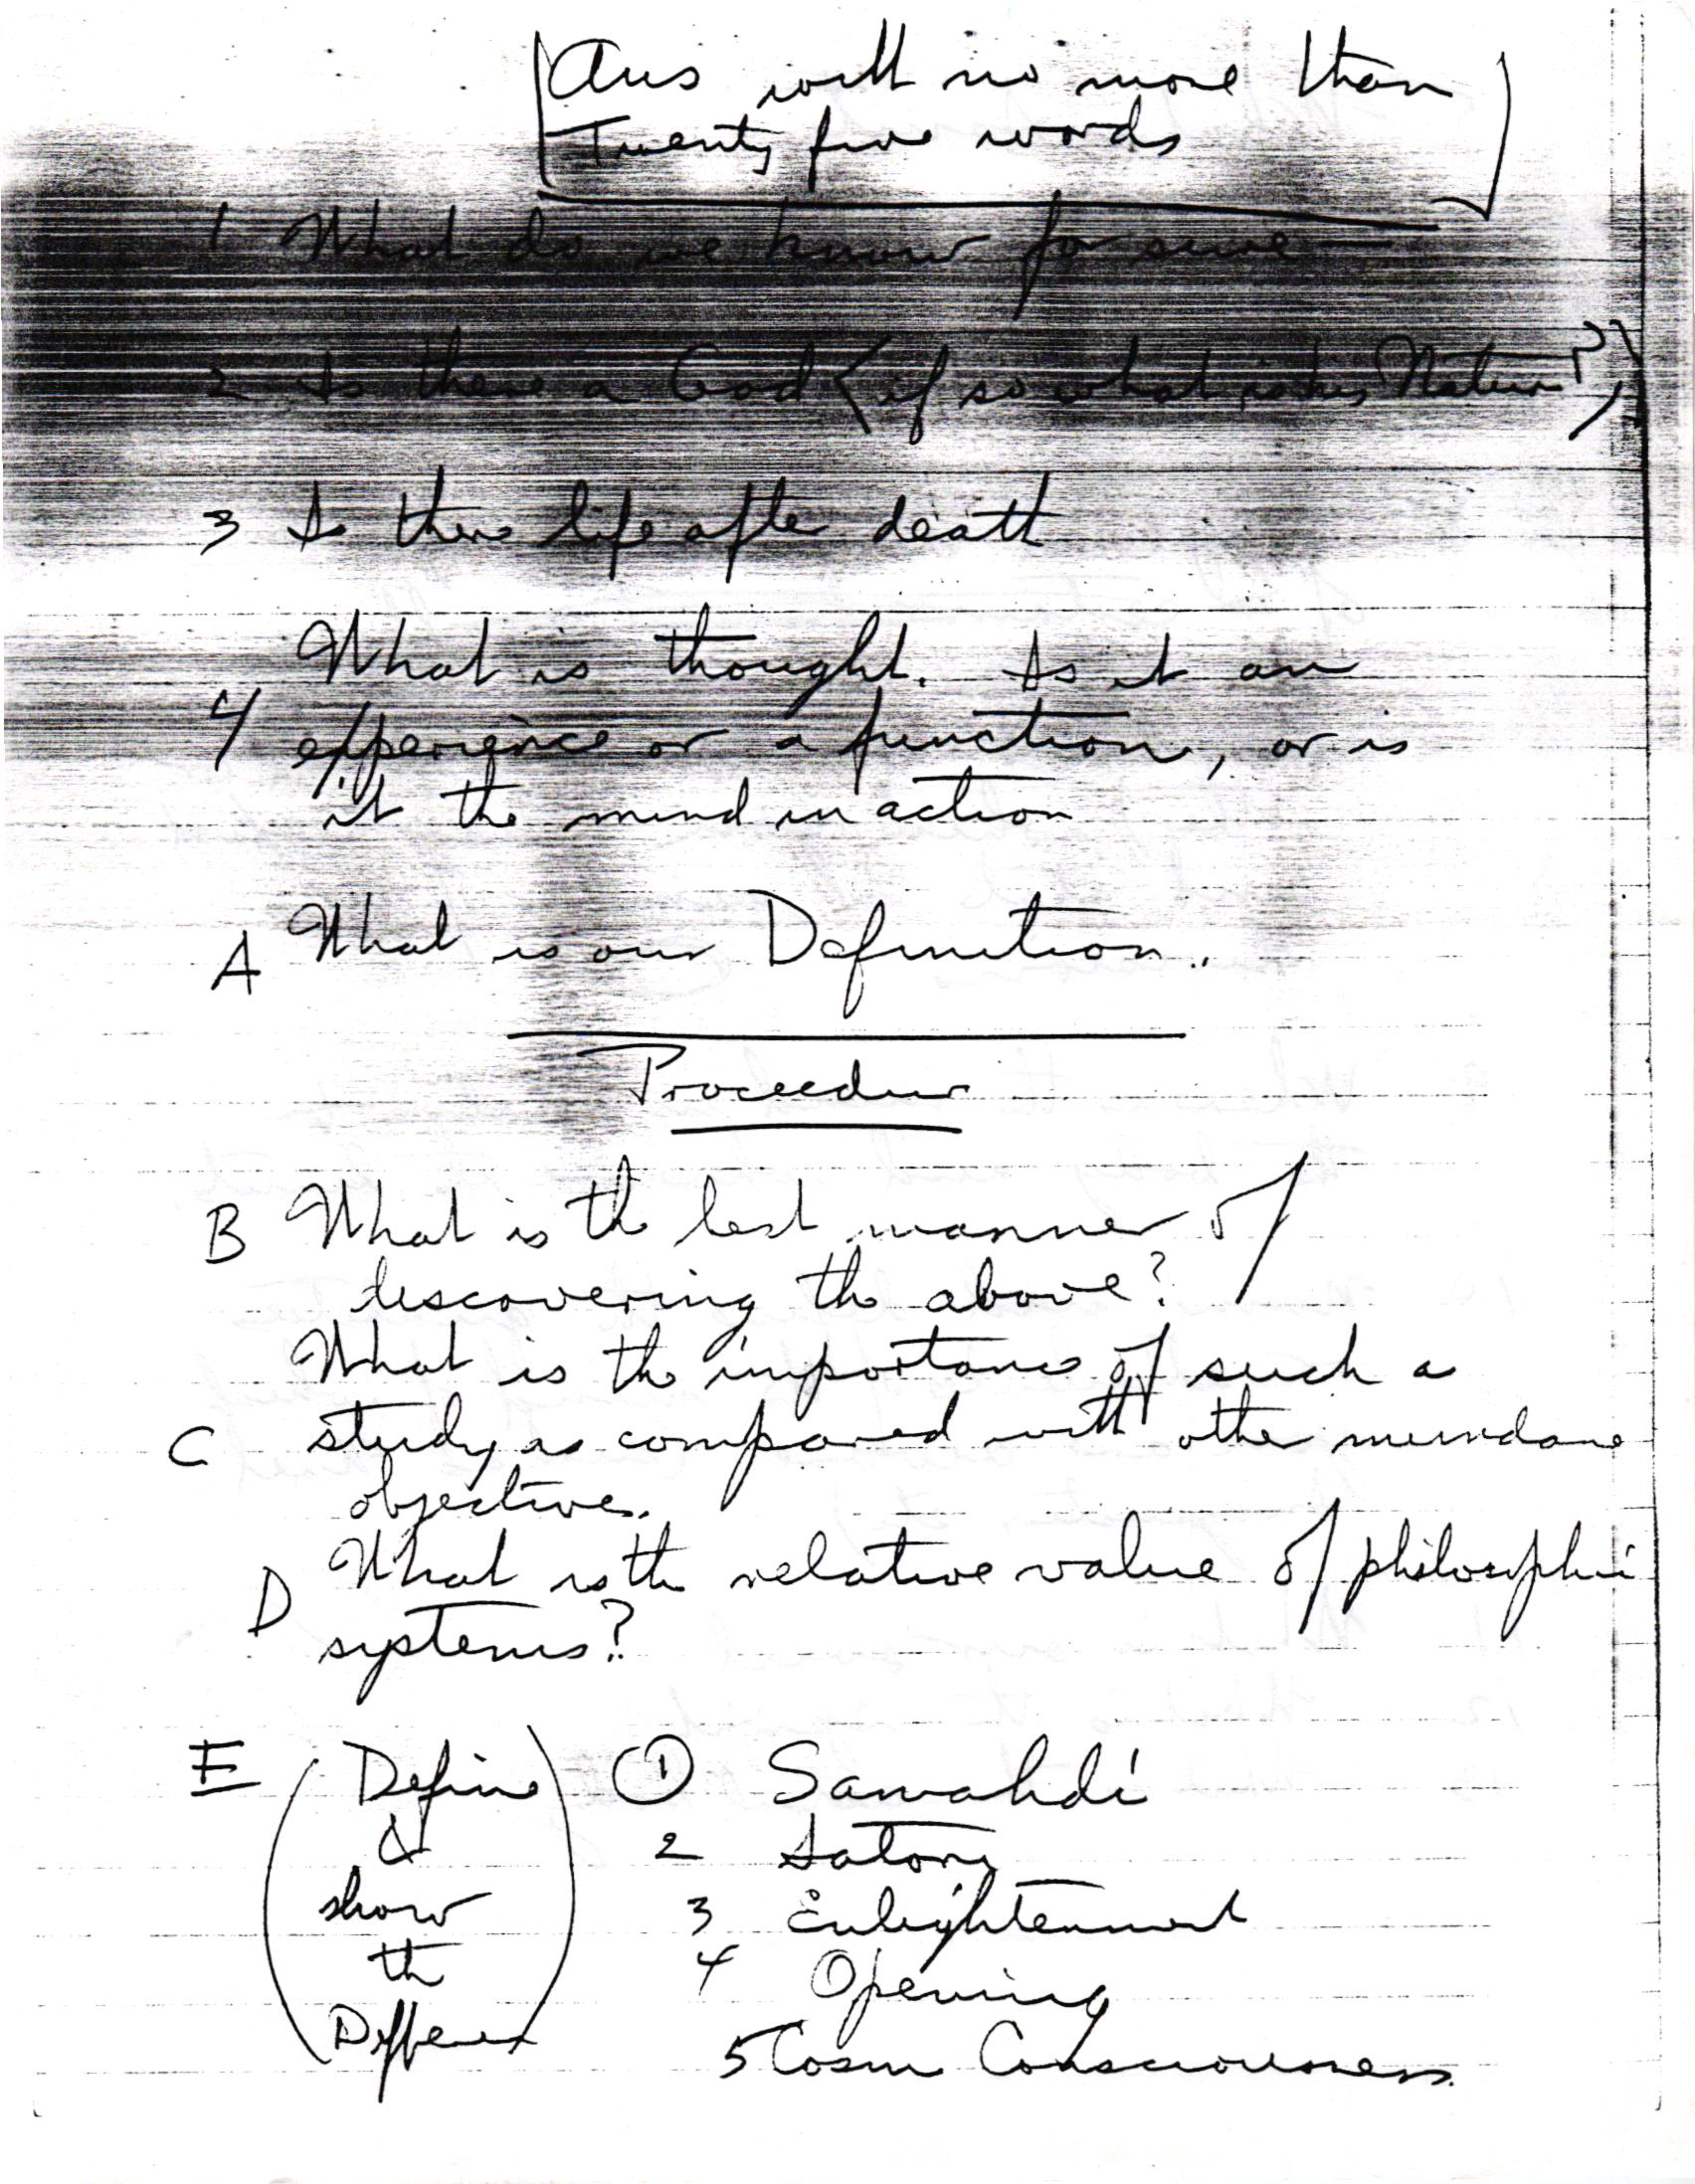 Ans with no more than
Twenty five words
1 What do we know for sure —
2 Is there a God (if so what is his Nature?)
3 Is there life after death
What is thought. Is it an
4 experience or a function, or is
it the mind in action
A What is our Definition..
Proceedur
B What is the best manner of
discovering the above?
What is the importance of such a
C study as compared with other mundane
objectives.
D What is the relative value of philosophic
systems?
E (Define & show the Difference)
① Samahdi
2 Satori
3 Enlightenment
4 Opening
5 Cosmic Consciousness.